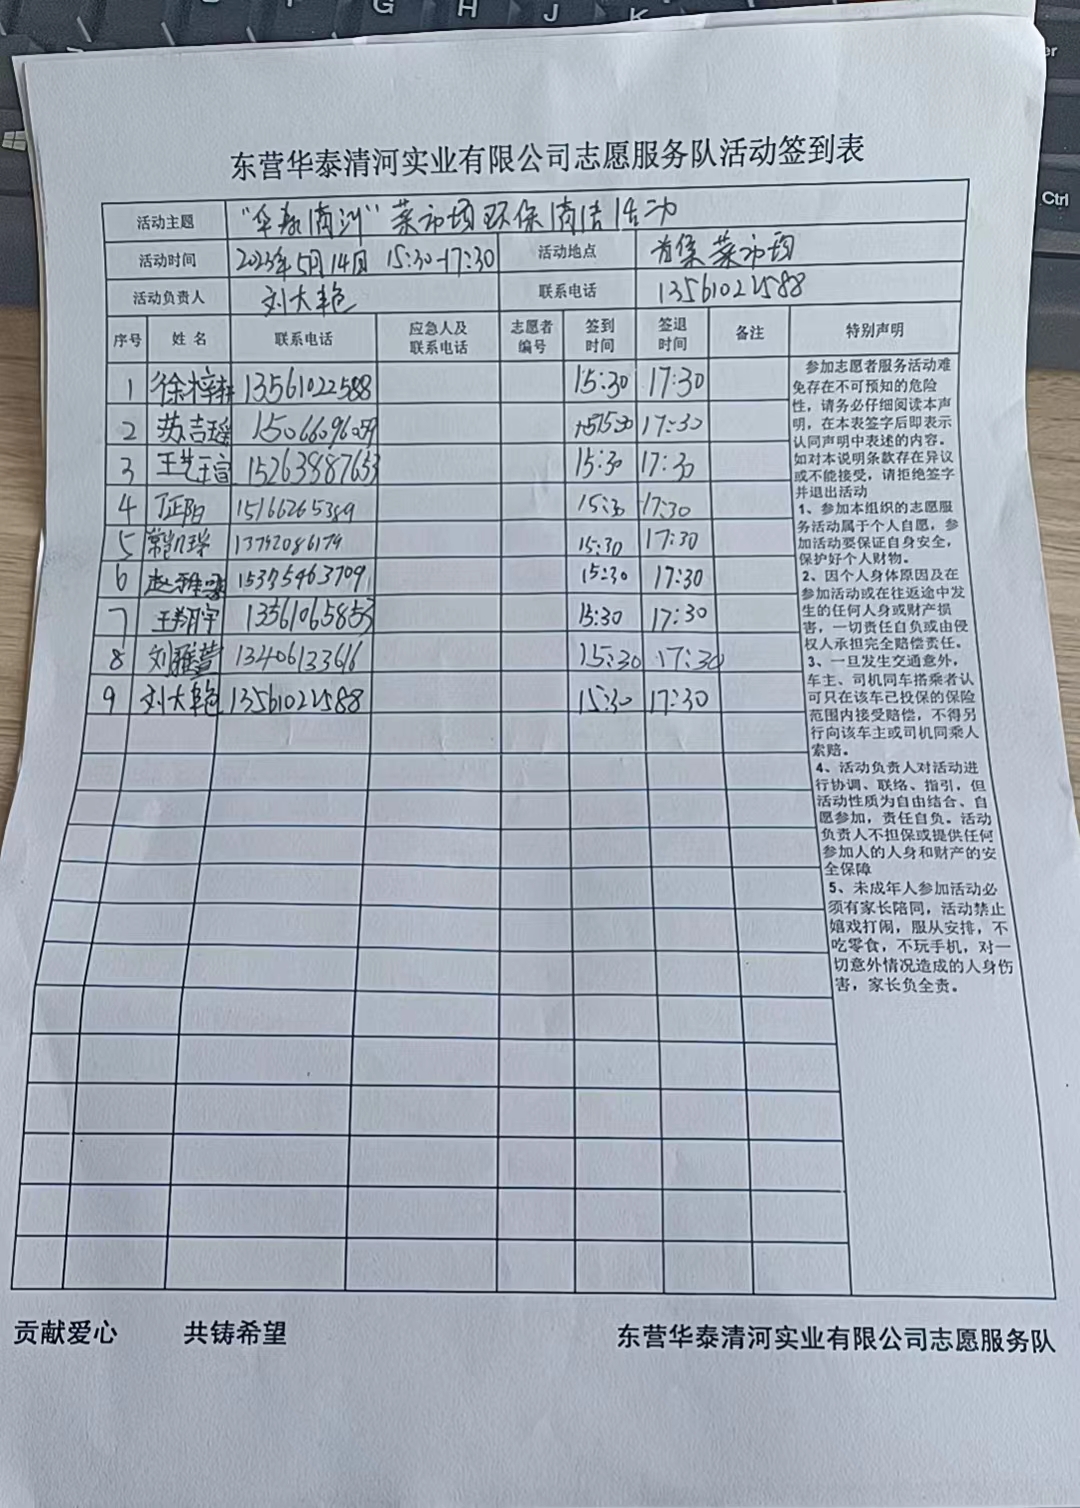 东营华泰清河实业有限公司志愿服务队活动签到表
活动主题 菜市场环保清洁活动
活动时间 2023年5月14日 15:30-17:30 活动地点 菜市场
活动负责人 刘大艳 联系电话 13561022588
序号 姓名 联系电话 应急人及联系电话 志愿者编号 签到时间 签退时间 备注 特别声明
1 13561022588 15:30 17:30
2 苏吉瑶 15:30 17:30
3 15263887653 15:30 17:30
4 15166265389 15:30 17:30
5 13792086179 15:30 17:30
6 15375463709 15:30 17:30
7 王翔宇 13561065853 15:30 17:30
8 刘雅萱 13406133616 15:30 17:30
9 刘大艳 13561022588 15:30 17:30
参加志愿者服务活动难
免存在不可预知的危险
性，请务必仔细阅读本声
明，在本表签字后即表示
认同声明中表述的内容。
如对本说明条款存在异议
或不能接受，请拒绝签字
并退出活动
1、参加本组织的志愿服
务活动属于个人自愿，参
加活动要保证自身安全，
保护好个人财物。
2、因个人身体原因及在
参加活动或在往返途中发
生的任何人身或财产损
害，一切责任自负或由侵
权人承担完全赔偿责任。
3、一旦发生交通意外，
车主、司机同车搭乘者认
可只在该车已投保的保险
范围内接受赔偿，不得另
行向该车主或司机同乘人
索赔。
4、活动负责人对活动进
行协调、联络、指引，但
活动性质为自由结合、自
愿参加，责任自负。活动
负责人不担保或提供任何
参加人的人身和财产的安
全保障
5、未成年人参加活动必
须有家长陪同，活动禁止
嬉戏打闹，服从安排，不
吃零食，不玩手机，对一
切意外情况造成的人身伤
害，家长负全责。
贡献爱心 共铸希望 东营华泰清河实业有限公司志愿服务队
G H J K
Ctrl